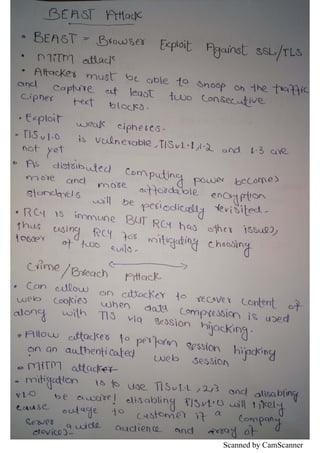 BEAST Attack
• BEAST = Browser Exploit Against SSL/TLS
• MITM attack
• Attacker must be able to snoop on the traffic
and capture at least two consecutive
cipher text blocks.
• Exploit weak ciphers.
• TLSv1.0 is vulnerable, TLSv1.1, 1.2 and 1.3 are
not yet
• As distributed computing power becomes
more and more affordable encryption
standards will be periodically revisited.
• RC4 is immune BUT RC4 has other issues,
thus using RC4 for mitigating choosing
lesser of two evils.
Crime/Breach Attack
• Can allow an attacker to recover content of
web cookies when data compression is used
along with TLS via session hijacking.
• Allow attacker to perform session hijacking
on an authenticated web session
• MITM attacker
• mitigation is to use TLSv1.1, 2,3 and disabling
v1.0 be aware! disabling TLSv1.0 will likely
cause outage to customer if a company
server a wide audience and array of
devices.
Scanned by CamScanner